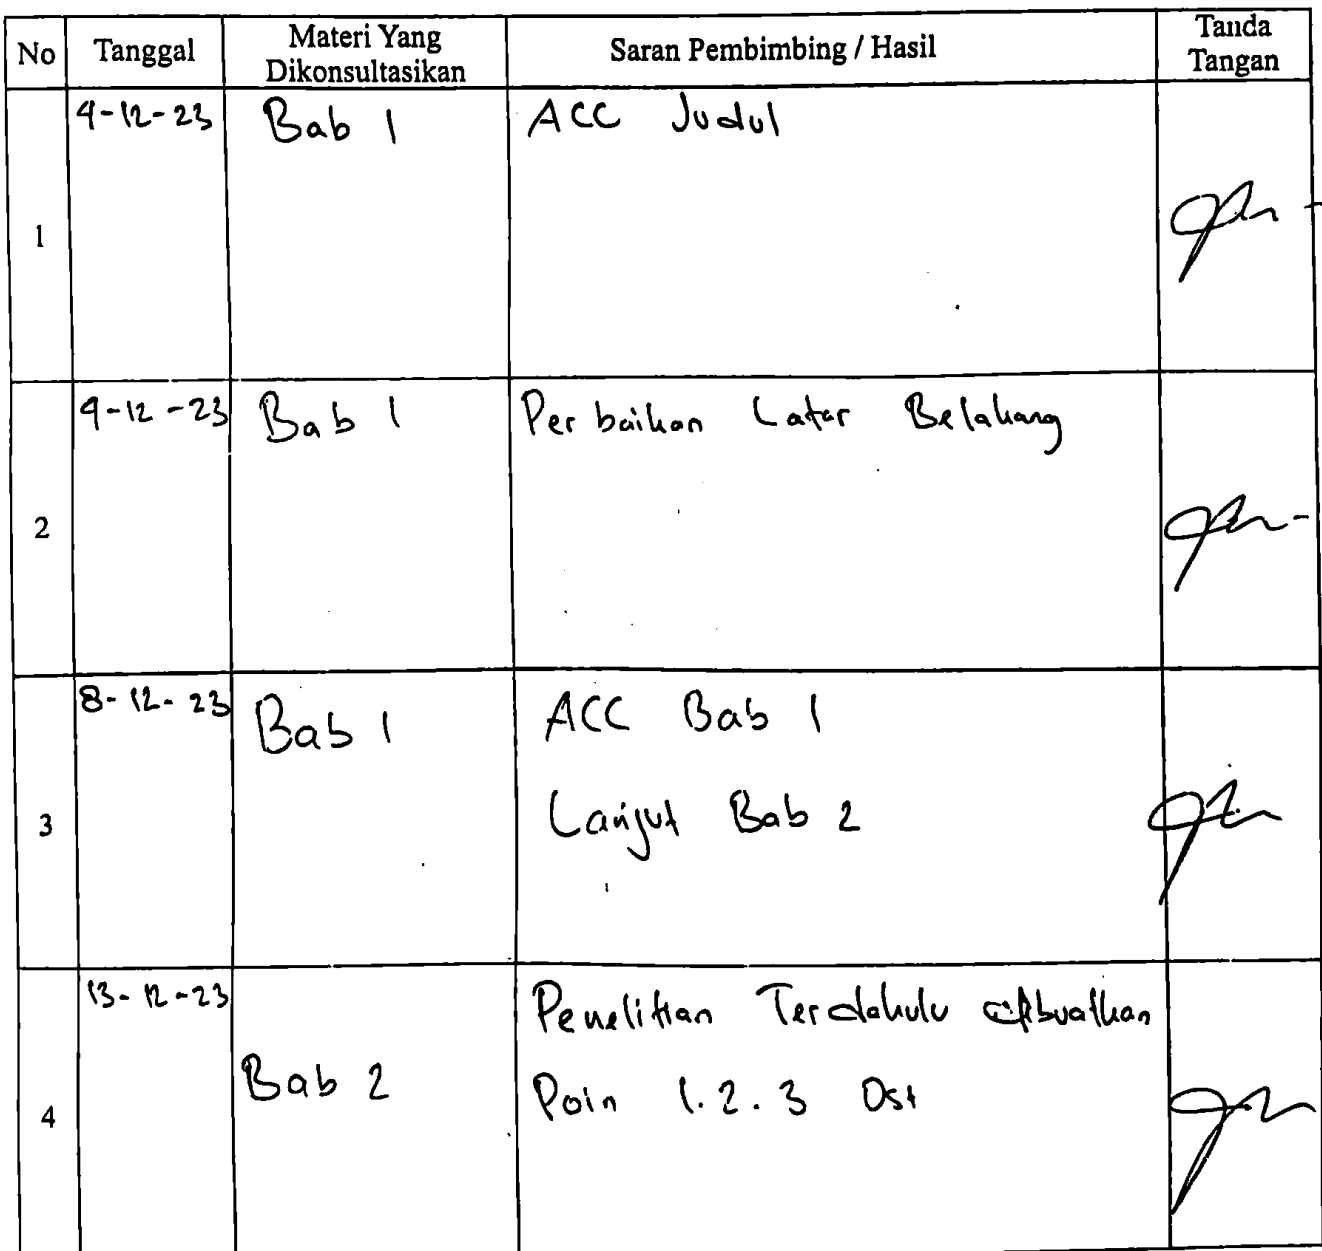 No Tanggal Materi Yang Dikonsultasikan Saran Pembimbing / Hasil Tanda Tangan
1 4-12-23 Bab 1 ACC Judul
2 4-12-23 Bab 1 Perbaikan Latar Belakang
3 8-12-23 Bab 1 ACC Bab 1
Lanjut Bab 2
4 13-12-23 Bab 2 Penelitian Terdahulu dibuatkan
Poin 1.2.3 Dst